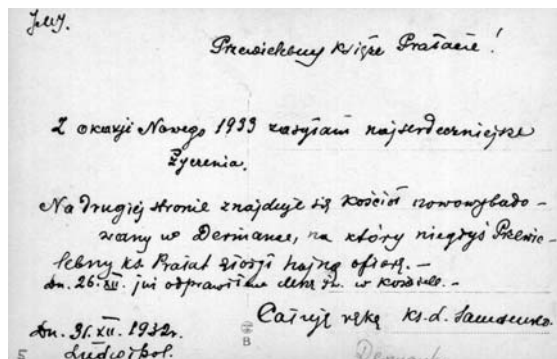 J.M.J.
Przewielebny Księże Prałacie!
Z okazji Nowego 1933 zasyłam najserdeczniejsze
życzenia.
Na drugiej stronie znajduje się kościół nowowybudo-
wany w Dermance, na który niegdyś Przewie-
lebny ks. Prałat złożył hojną ofiarę.-
Dn. 26.XII. już odprawiłem Mszę św. w kościele.-
Całuję rękę ks. L.
Dn. 31.XII. 1932r.
Ludwipol.
B
5